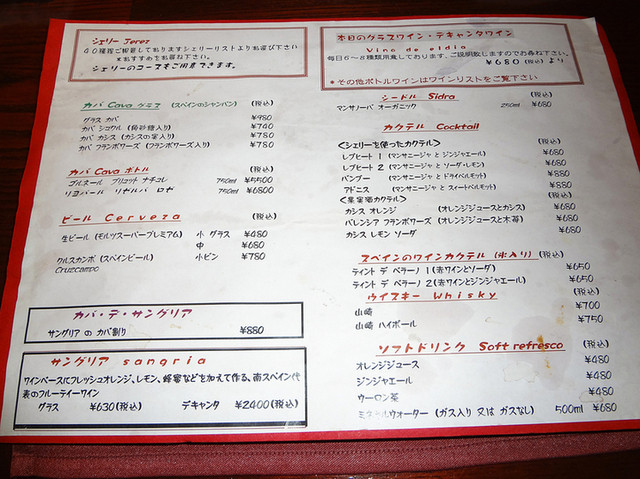 シェリー Jerez
60種程ご用意しておりますシェリーリストよりお選び下さい
*おすすめをお尋ね下さい。
シェリーのコースもご用意できます。
カバ Cava グラス (スペインのシャンパン) (税込)
グラス カバ ¥980
カバ シュクル (角砂糖入り) ¥740
カバ カシス (カシスの実入り) ¥780
カバ フランボワーズ (フランボワーズ入り) ¥780
カバ Cava ボトル (税込)
ゴルネール ブリュット ナチュレ 750ml ¥5500
リヨパール リセルバ ロゼ 750ml ¥6800
ビール Cerveza (税込)
生ビール (モルツスーパープレミアム) 小 グラス ¥480
中 ¥680
クルスカンポ (スペインビール) 小ビン ¥780
Cruzcampo
カバ・デ・サングリア
サングリア の カバ割り ¥880
サングリア sangria
ワインベースにフレッシュオレンジ、レモン、蜂蜜などを加えて作る、南スペイン代
表のフルーティーワイン
グラス ¥630(税込) デキャンタ ¥2400(税込)
本日のグラスワイン・デキャンタワイン
Vino de eldia
毎日6〜8種類用意しております、ご説明致しますのでお尋ね下さい。
¥680(税込)より
*その他ボトルワインはワインリストをご覧下さい
シードル Sidra (税込)
マンサノーバ オーガニック 250ml ¥680
カクテル Cocktail
<シェリーを使ったカクテル> (税込)
レブヒート1 (マンサニージャ と ジンジャエール) ¥680
レブヒート2 (マンサニージャ と ソーダ・レモン) ¥680
バンブー (マンサニージャ と ドライベルモット) ¥880
アドニス (マンサニージャ と スイートベルモット) ¥880
<果実酒カクテル> (税込)
カシス オレンジ (オレンジジュースとカシス) ¥680
バレンシア フランボワーズ (オレンジジュースと木苺) ¥680
カシス レモン ソーダ ¥680
スペインのワインカクテル (氷入り) (税込)
ティント デ ベラーノ 1 (赤ワインとソーダ) ¥650
ティント デ ベラーノ 2 (赤ワインとジンジャエール) ¥650
ウイスキー Whisky (税込)
山崎 ¥700
山崎 ハイボール ¥750
ソフトドリンク Soft refresco (税込)
オレンジジュース ¥480
ジンジャエール ¥480
ウーロン茶 ¥480
ミネラルウォーター (ガス入り 又は ガスなし) 500ml ¥680